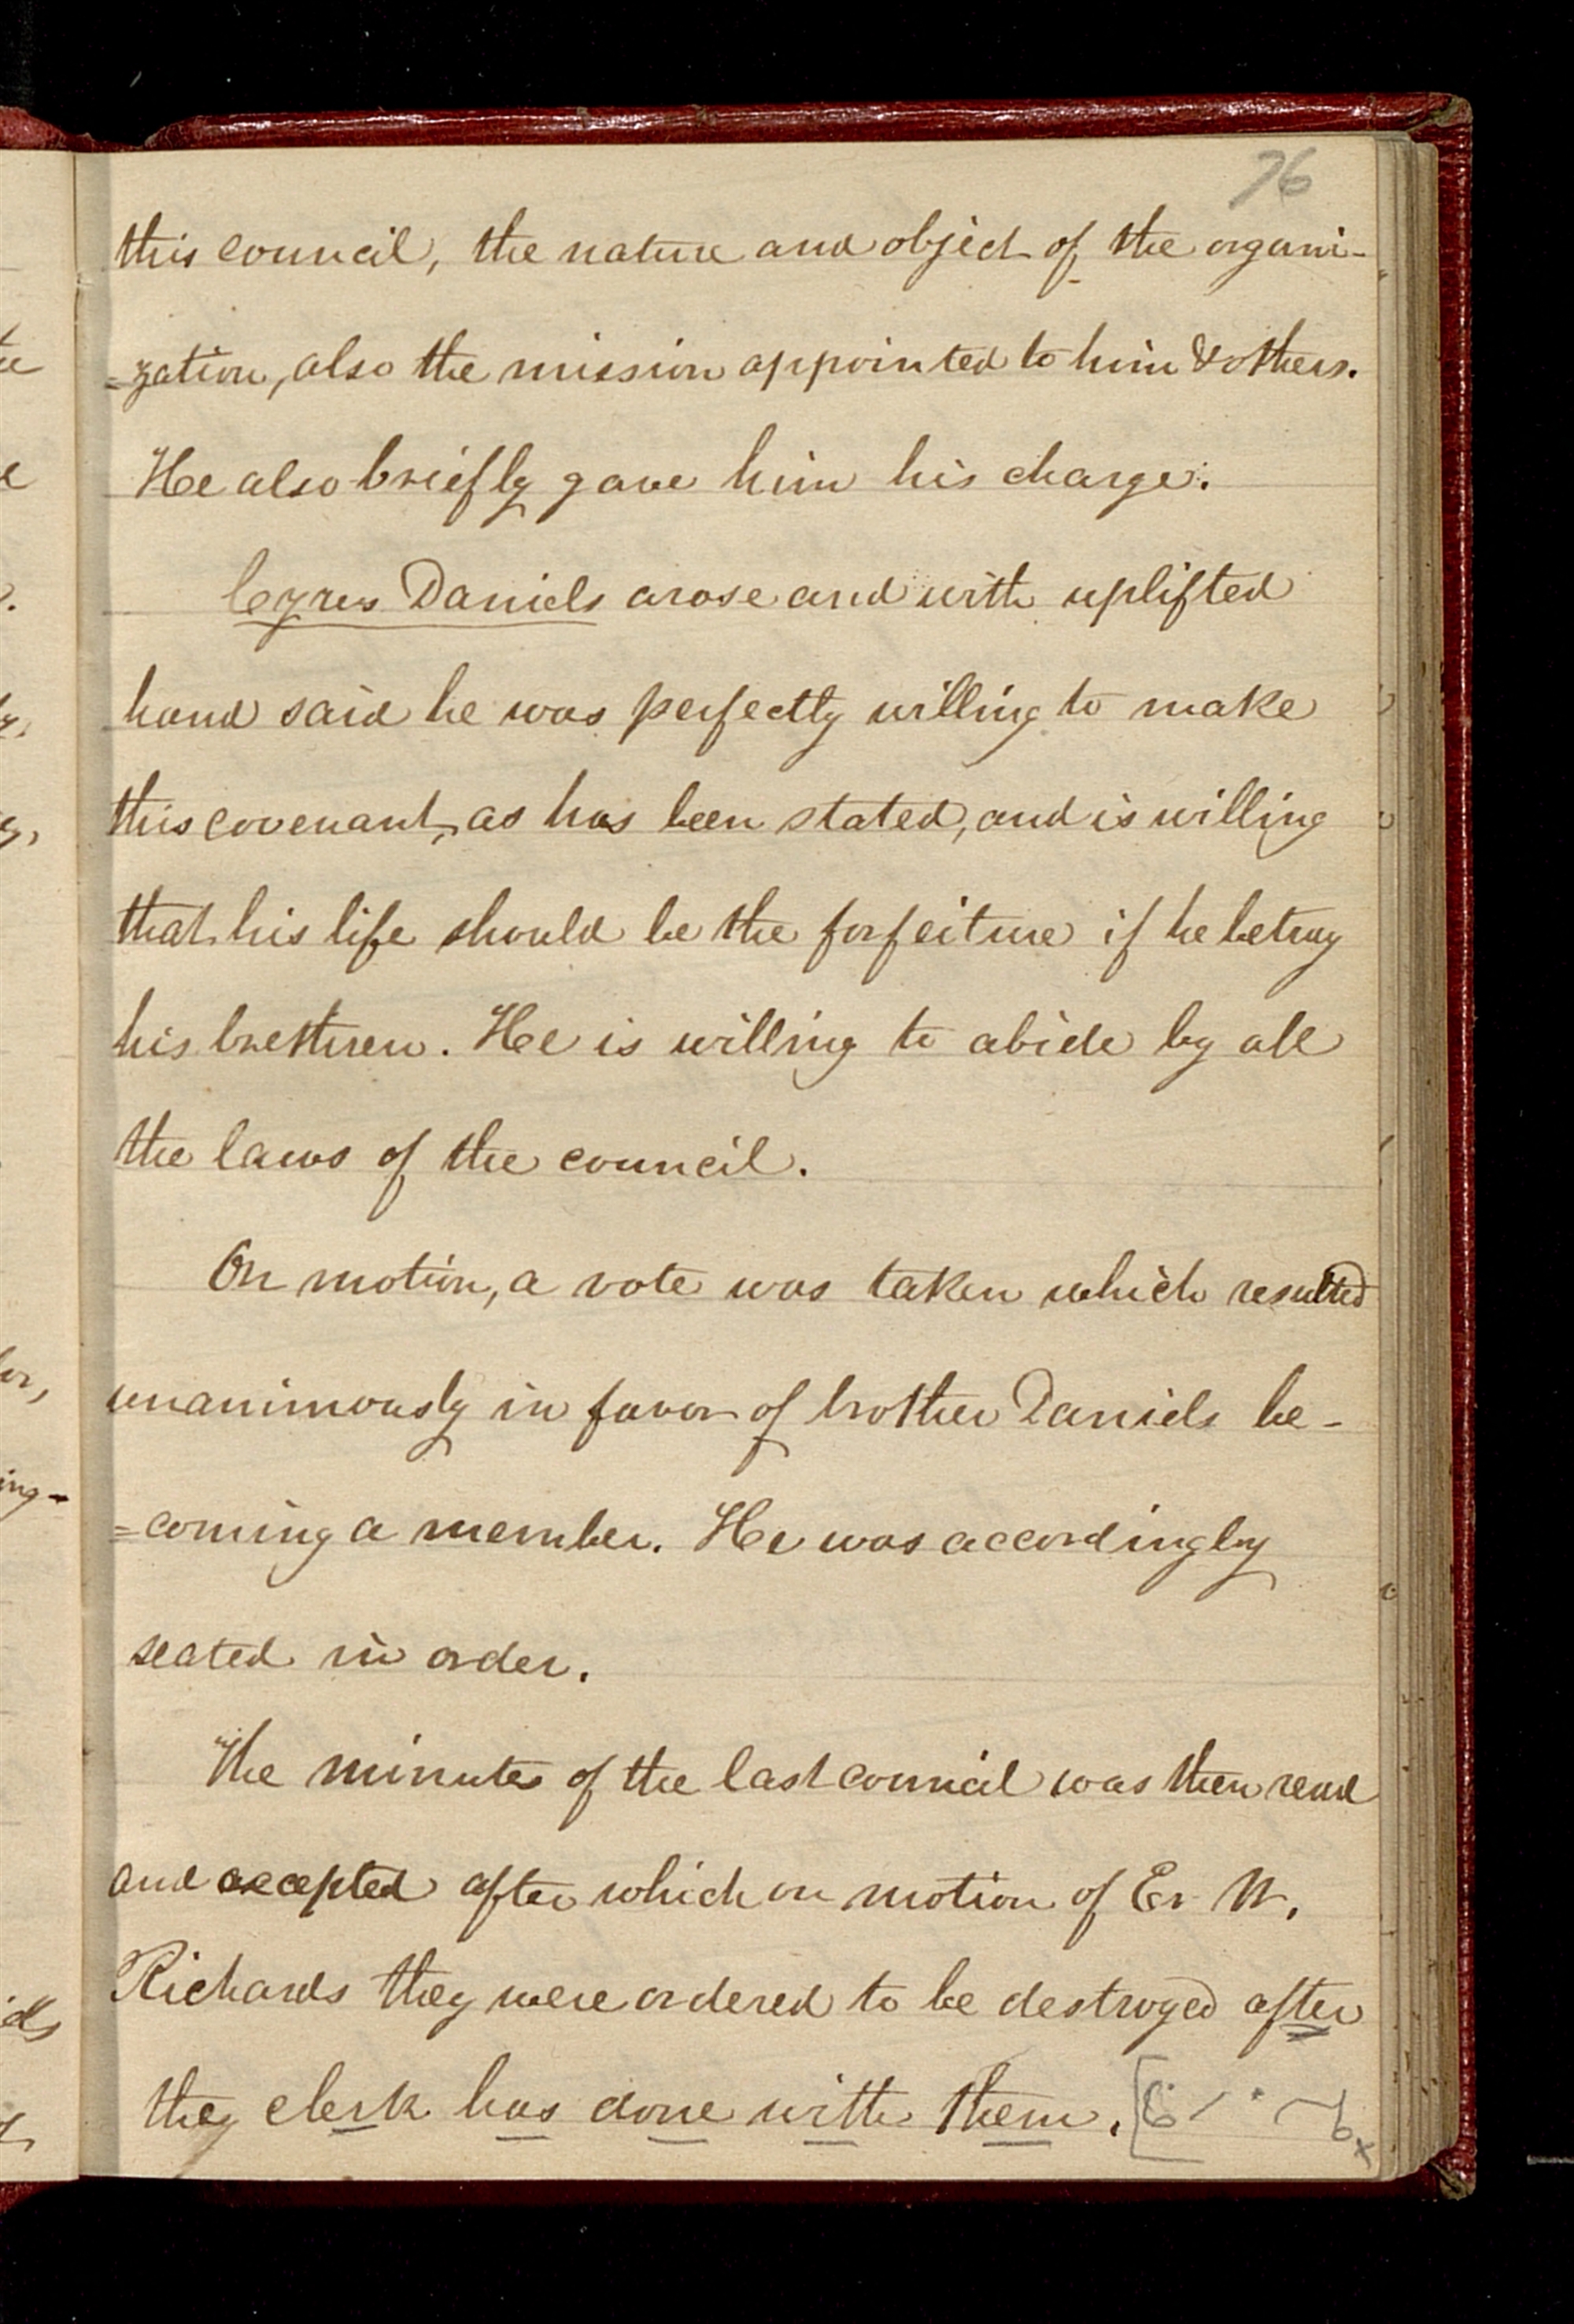 76
this council, the nature and object of the organi-
=zation, also the mission appointed to him & others.
He also briefly gave him his charge.
Cyrus Daniels arose and with uplifted
hand said he was perfectly willing to make
this covenant, as has been stated, and is willing
that his life should be the forfeiture if he betray
his brethren. He is willing to abide by all
the laws of the council.
On motion, a vote was taken which resulted
unanimously in favor of brother Daniels be-
=coming a member. He was accordingly
seated in order.
The minutes of the last council was then read
and accepted after which on motion of Er W.
Richards they were ordered to be destroyed after
they clerk has done with them.